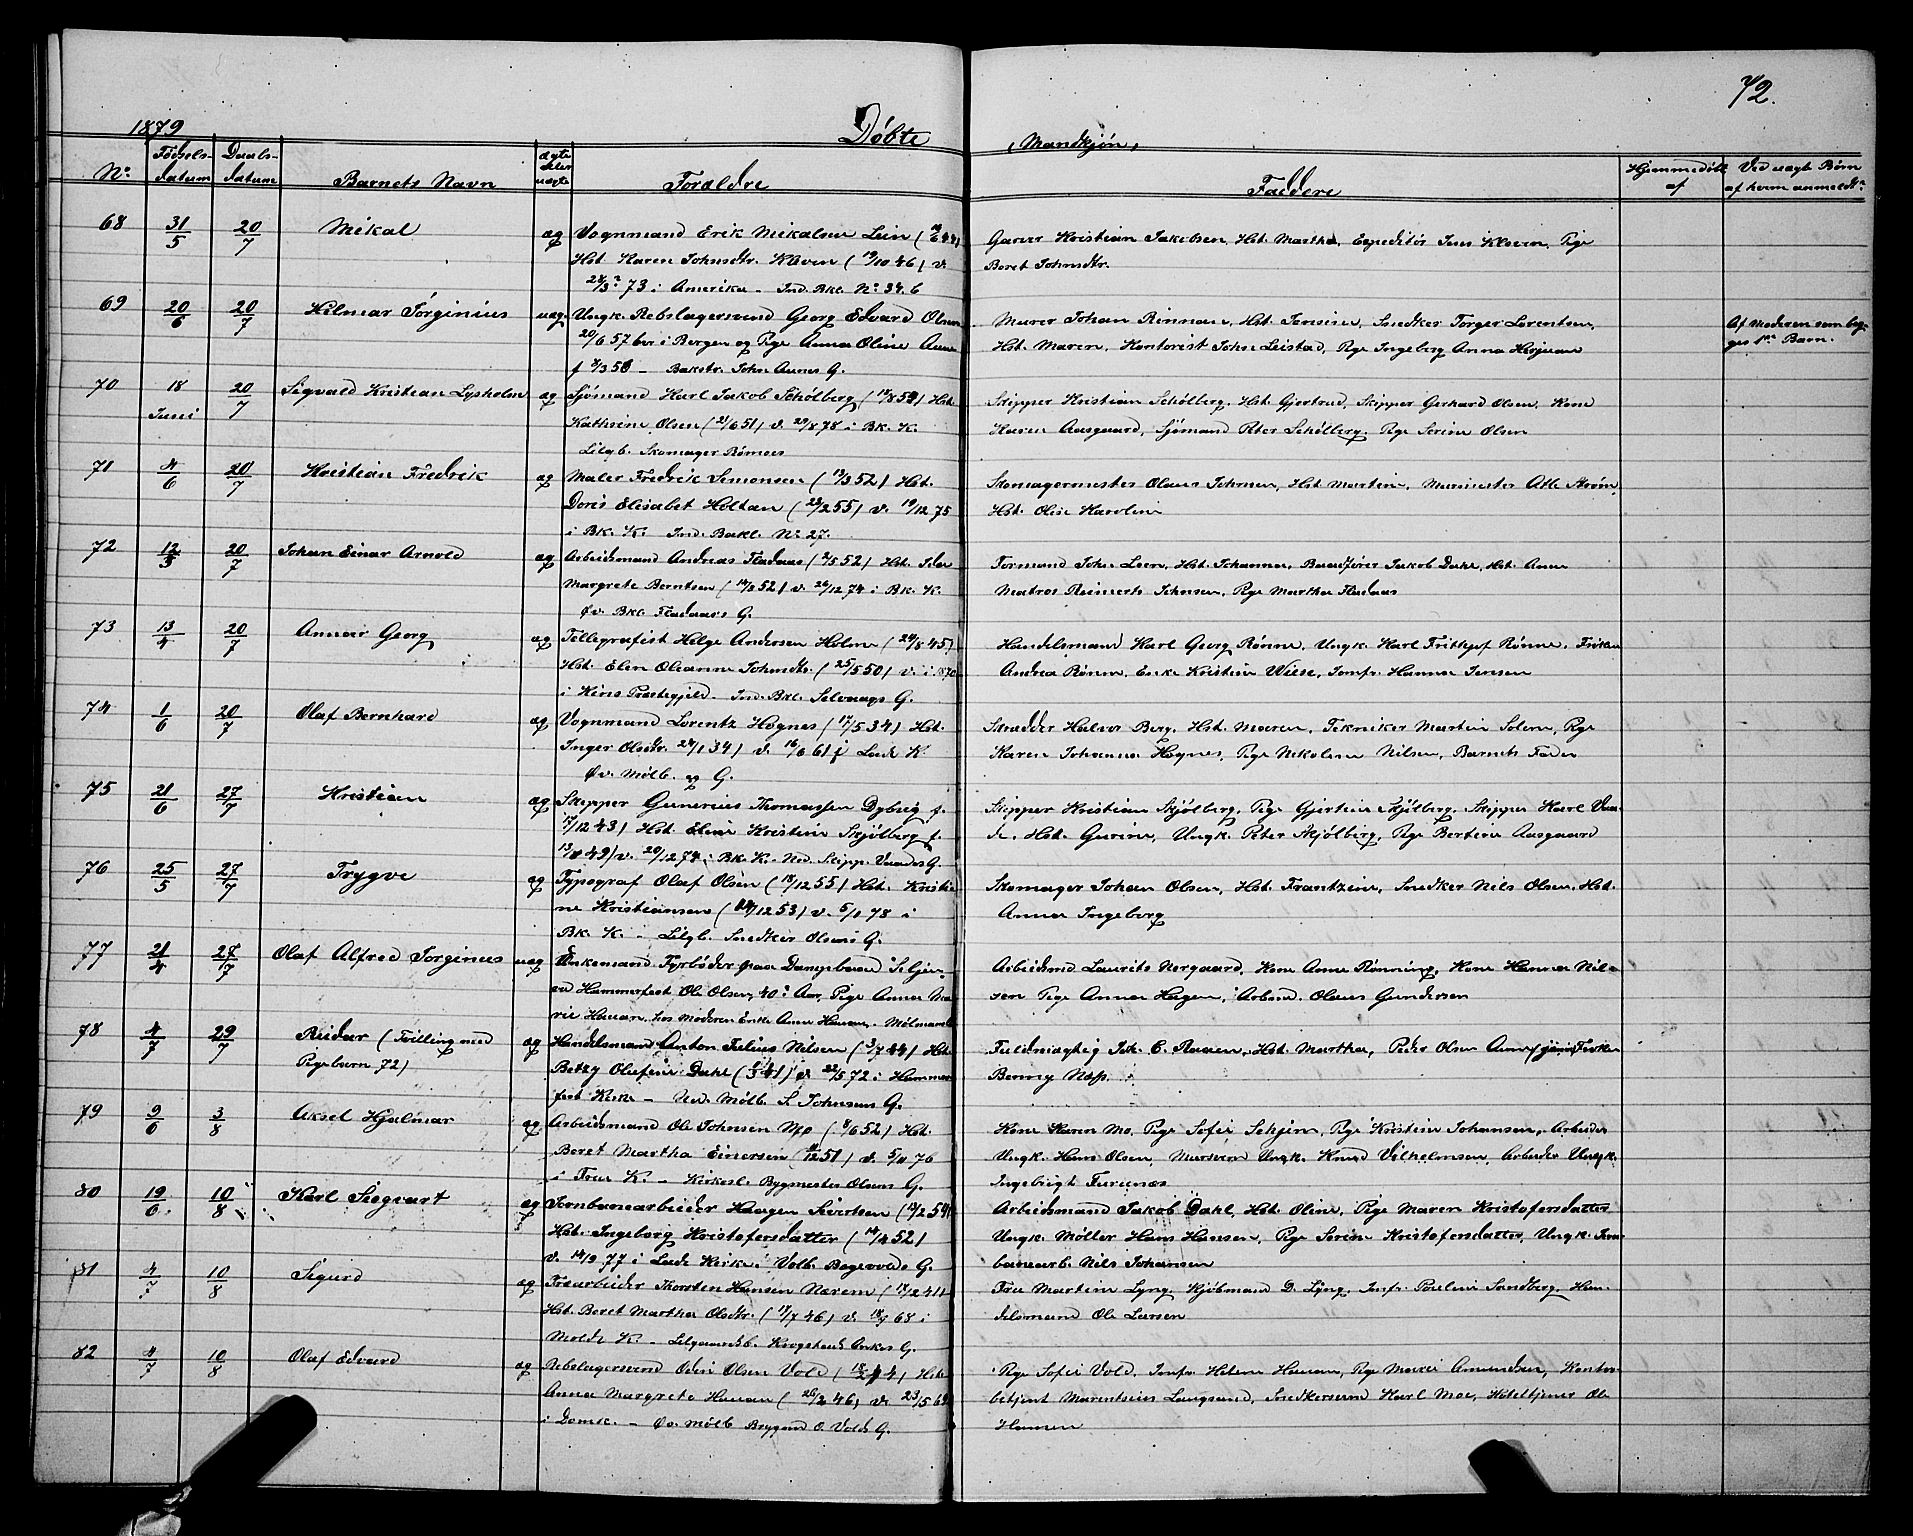 72.
1879
Døbte
Mandkjøn,
No.
Fødsels-
datum
Daabs-
datum
Barnets Navn
ægte
eller
uægte
Forældre
Faddere
Hjemmedøbt
af
Ved uægt. Børn
af hvem anmeldt
68 31/5 20/7 Mikal æg Vognmand Erik Mikalsen Lein
Hst. Karen Johnsdtr. Kleven (19/10 46) v.
73 i Amerika - Ind. Bkl. No. 34. b
Garver Kristian Jakobsen, Hst. Martha, Expeditør Jens Kleven, Pige
Beret Johnsdtr.
69 20/6 20/7 Hilmar Jørginius uæg. Ungk. Rebslagersvend Georg Edvard Olsen
20/6 57 bor i Bergen og Pige Anna Oline Aune
f 3/3 58 - Bakstr. John Aunes G.
Murer Johan Rinnan, Hst. Jensine, Snedker Torger Lorentsen,
Hst. Maren, Kontorist John Leistad, Pige Ingeborg Anna
Af Moderen som beg-
ges 1ste Barn.
70 18 Juni 20/7 Sigvald Kristian Lysholm æg Sjømand Karl Jakob Schølberg Hst.
Kathrine Olsen (21/6 51) v. 29/8 78 i Bk. K.
Lilgb. Skomager
Skipper Kristian Schølberg, Hst. Gjertrud, Skipper Gerhard Olsen, Kone
Karen Aasgaard, Sjømand Peter Schølberg, Pige Serine Olsen
71 4/6 20/7 Kristian Fredrik æg Maler Fredrik Simonsen (13/3 52) Hst.
Doris Elisabet Holtan (23/2 55) v. 19/12 75
i Bk. K. Ind. Bakl. No. 27.
Skomagermester Olaus Johnsen, Hst. Martine, Murmester Atle Strøm,
Hst. Olise Karoline
72 12/5 20/7 Johan Einar Arnold æg Arbeidsmand Andreas Fladaas (2/5 52) Hst. Idea
Margrete Berntsen v. 26/12 74 i Bk. K.
Øv. Bkl. Fladaas G.
Formand John Leen, Hst. Johanna, Baadfører Jakob Dahl, Hst. Anna
Matros Reinert Johnsen, Pige Martha Fladaas
73 13/4 20/7 Annar Georg æg Tellegrafist Helge Andersen Holm (24/8 45)
Hst. Elen Oleanne Johnsdtr. (25/5 50) v. i 1870
i Kins Præstegjeld - Ind. Bkl. Selvaags G.
Handelsmand Karl Georg Rønne, Ungk. Karl Frithjof Rønne, Frøken
Andrea Rønne, Enke Kristine Wiese, Jomfr. Hanna Jensen
74 1/6 20/7 Olaf Bernhard æg Vognmand Lorentz Hognes (17/5 34) Hst.
Inger Olsdtr. 24/1 34) v. 16/6 61 i Lade K.
Øv. Mølb. eg G.
Skrædder Halvor Berg, Hst. Maren, Tekniker Martin Solem, Pige
Karen Johanna Hognes, Pige Nikoline Nilsen, Barnets Fader
75 21/6 27/7 Kristian æg Skipper Gunerius Thomassen Dyboig f.
17/12 43) Hst. Eline Kristine Skjølberg f.
13/8 49) v. 20/12 74 i Bk. K. Ned. Skipp. Vaades G.
Skipper Kristian Skjølberg, Pige Gjertine Skjølberg, Skipper Karl Vaa-
de, Hst. Gurine, Ungk. Peter Skjølberg, Pige Bertine Aasgaard
76 25/5 27/7 Trygve æg Typograf Olaf Olsen (18/12 55) Hst. Kristi-
ne Kristiansen v. 5/1 78 i
Bk. K. - Lilgb. Snedker Olsens G.
Skomager Johan Olsen, Hst. Frantzine, Snedker Nils Olsen, Hst.
Anna Ingeborg
77 21/4 27/7 Olaf Alfred Jørginus uæg Enkemand Fyrbøder paa Dampbaad
Hammerfest Ole Olsen, 40 Aar, Pige Anna Ma-
rie Hauan, hos Moderen Enke Anne Hauan, Mølmans G.
Arbeidsmd. Laurits Nergaard, Kone Anne Rønning, Kone Hanna Nil-
sen Pige Anna Hagen, Arbmd. Olaus Gundersen
78 4/7 29/7 Reidar (Tvilling med
Pigebarn 72)
æg Handelsmand Anton Julius Nilsen (3/7 44) Hst.
Betzy Olufine Dahl v 22/5 72 i Hammer-
fest Kirke - Ned. Mølb. S. Johnsens G.
Fuldmægtig Joh. C. Raaen, Hst. Martha, Peder Olsen Frøken
Benny Næss.
79 9/6 3/8 Aksel Hjalmar æg Arbeidsmand Ole Johnsen Mo (8/6 52) Hst.
Beret Martha Einersen v. 5/11 76
i Frue K. - Kirkesl. Bygmester Olsens G.
Kone Karen Mo, Pige Sofie Schjen, Pige Kristine Johansen, Arbeider
Ungk. Hans Olsen, Mursvend Ungk. Knud Vilhelmsen, Arbeider Ungk.
Ingebrigt Furunæs
80 19/6 10/8 Karl Siegvart æg Jernbanearbeider Haagen Sivertsen (12/2 54)
Hst. Ingeborg Kristofersdatter (14/4 52)
v. 14/9 77 i Lade Kirke i Volb. Bagevolds G.
Arbeidsmand Jakob Dahl, Hst. Oline, Pige Maren Kristofersdatter
Ungk. Møller Hans Hansen, Pige Serine Kristofersdatter, Ungk. Jern-
banearb. Nils Johansen
81 4/7 10/8 Sigurd æg Træarbeider Thorsten Hansen Nerem (17/2 41)
Hst. Beret Martha Olsdtr. (17/7 46) v. 68 i
Molde K. - Lilgaardsb. Krogstads Enkes G.
Fru Martine Lyng, Kjøbmand D. Lyng, Jomfr. Pauline Sandberg, Han-
delsmand Ole Larsen
82 4/7 10/8 Olaf Edvard æg Rebslagersvend Odin Olsen Vold Hst.
Anna Margrete Hauan (26/2 46) v. 23/5 69
i Domk. - Øv. Mølb Bryggmd O. Volds G.
Pige Sofie Vold, Jomfr. Helene Hauan, Pige Marie Amundsen, Kontor-
betjent Marentsius Langsund, Snedkersvend Karl Moe, Hoteltjener Ole
Hansen